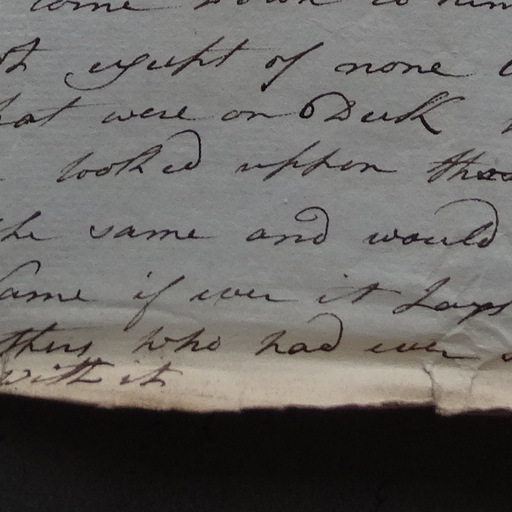 come down to him
ot except of none
hat were on Deck
looked uppon thos
the same and would
same if ever it haps
thers who had ever
with it